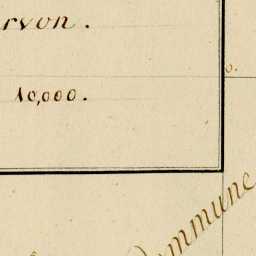 rvon.
10,000.
o.
Commune